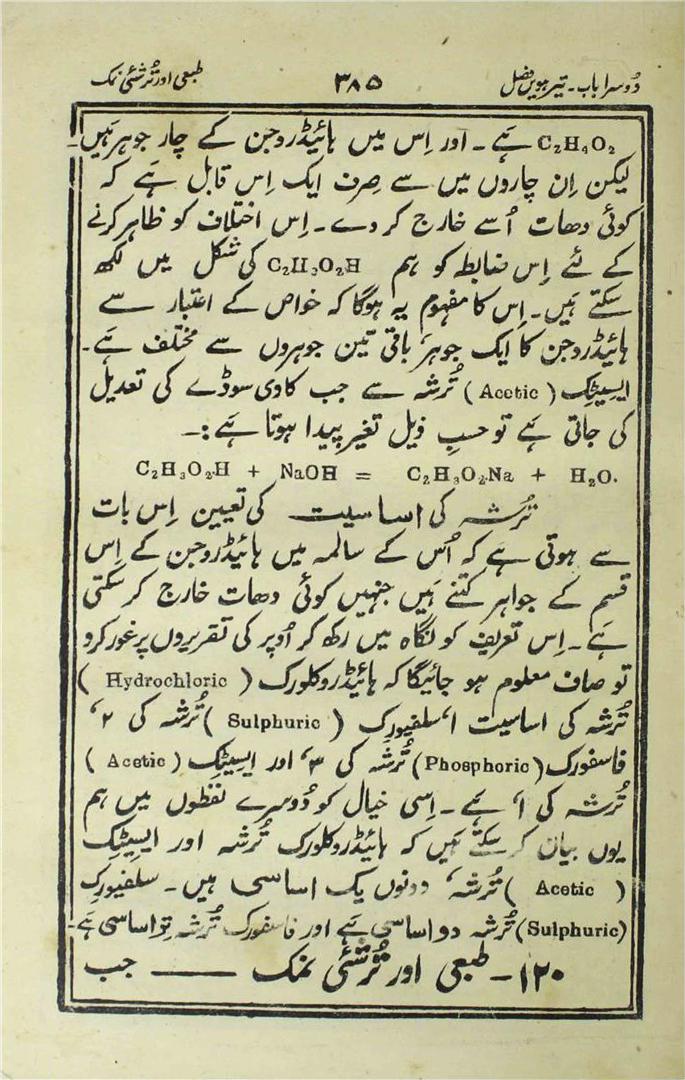 دُوسرا باب۔ تیرھویں فصل ۳۸۵ طبعی اور تُرشئی نمک
C₂H₄O₂ ہَے ۔ اور اِس میں ہائیڈروجن کے چار جوہر ہَیں۔
لیکن اِن چاروں میں سے صِرف ایک اِس قابل ہَے کہ
کوئی دھات اُسے خارج کر دے ۔ اِس اختلاف کو ظاہر کرنے
کے لئے اِس ضابطہ کو ہم C₂H₃O₂H کی شکل میں لکھ
سکتے ہَیں۔ اِس کا مفہوم یہ ہوگا کہ خواص کے اعتبار سے
ہائیڈروجن کا ایک جوہر، باقی تین جوہروں سے مختلف ہَے۔
ایسیٹِک (Acetic) تُرشہ سے جب کاوی سوڈے کی تعدیل
کی جاتی ہَے تو حسبِ ذیل تغیر پیدا ہوتا ہَے :۔
C₂H₃O₂·H + NaOH = C₂H₃O₂·Na + H₂O.
تُرشہ کی اساسیت کی تعیین اِس بات
سے ہوتی ہَے کہ اُس کے سالمہ میں ہائیڈروجن کے اِس
قسم کے جواہر کتنے ہَیں جنہیں کوئی دھات خارج کر سکتی
ہَے ۔ اِس تعریف کو نگاہ میں رکھ کر اُوپر کی تقریروں پر غور کرو
تو صاف معلوم ہو جائیگا کہ ہائیڈروکلورک (Hydrochloric)
تُرشہ کی اساسیت ۱، سلفیورک (Sulphuric) تُرشہ کی ۲،
فاسفورک (Phosphoric) تُرشہ کی ۳، اور ایسیٹِک (Acetic)
تُرشہ کی ۱، ہَے ۔ اِسی خیال کو دُوسرے لفظوں میں ہم
یوں بیان کر سکتے ہَیں کہ ہائیڈروکلورک تُرشہ اور ایسیٹِک
(Acetic) تُرشہ، دونوں یک اساسی ہیں ۔ سلفیورک
(Sulphuric) تُرشہ دو اساسی ہَے اور فاسفورک تُرشہ تِر اساسی ہَے۔
۱۲۰ ۔ طبعی اور تُرشئی نمک ——— جب